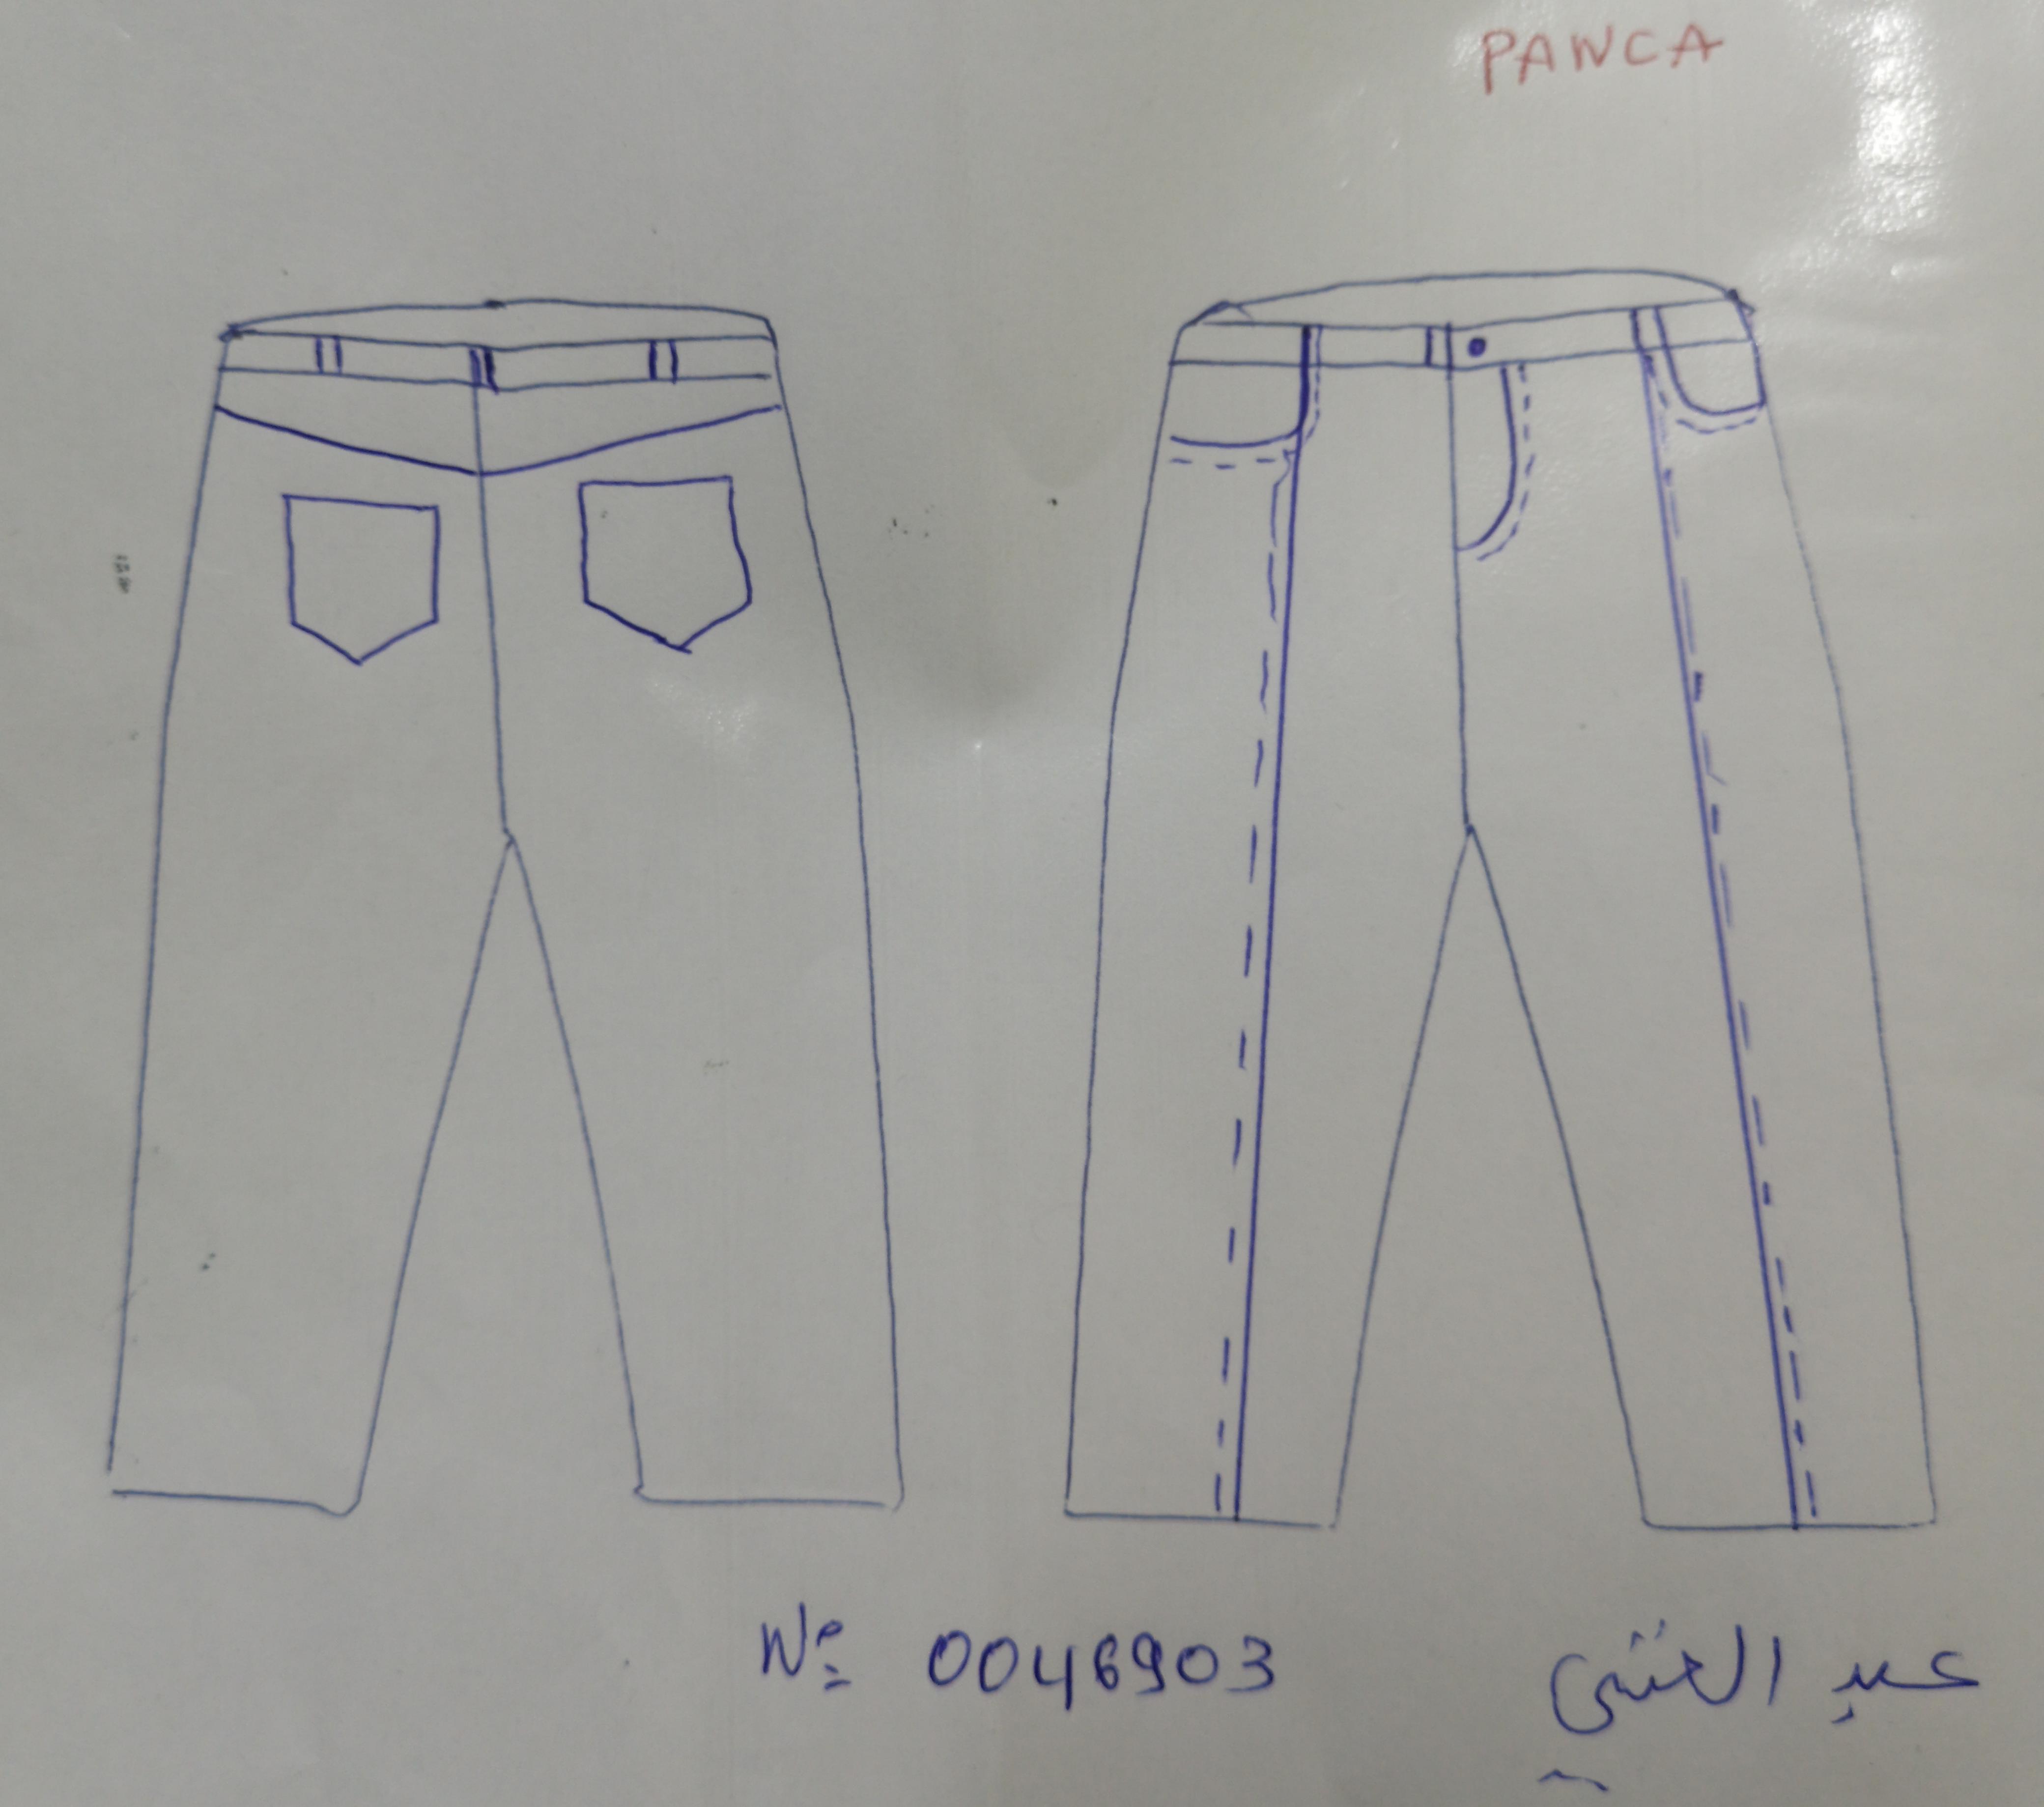 PANCA
Nº 0046903
عبد الغني